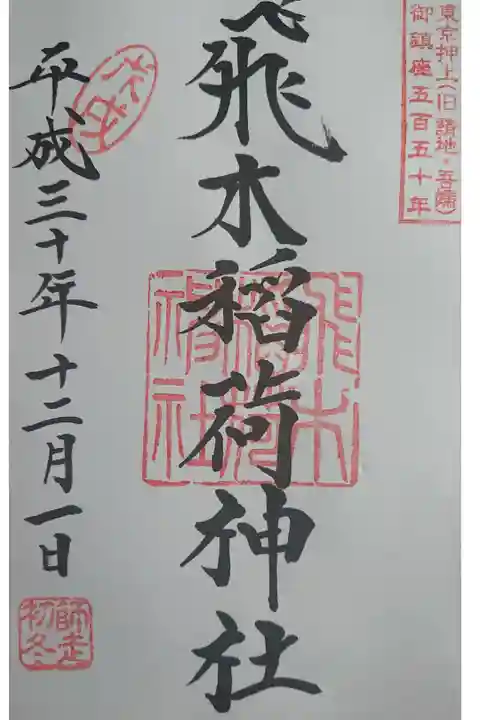 東京押上(旧 請地・吾嬬)
御鎮座五百五十年
飛木稲荷神社
飛木稲荷神社
平成三十年十二月一日
師走
初冬